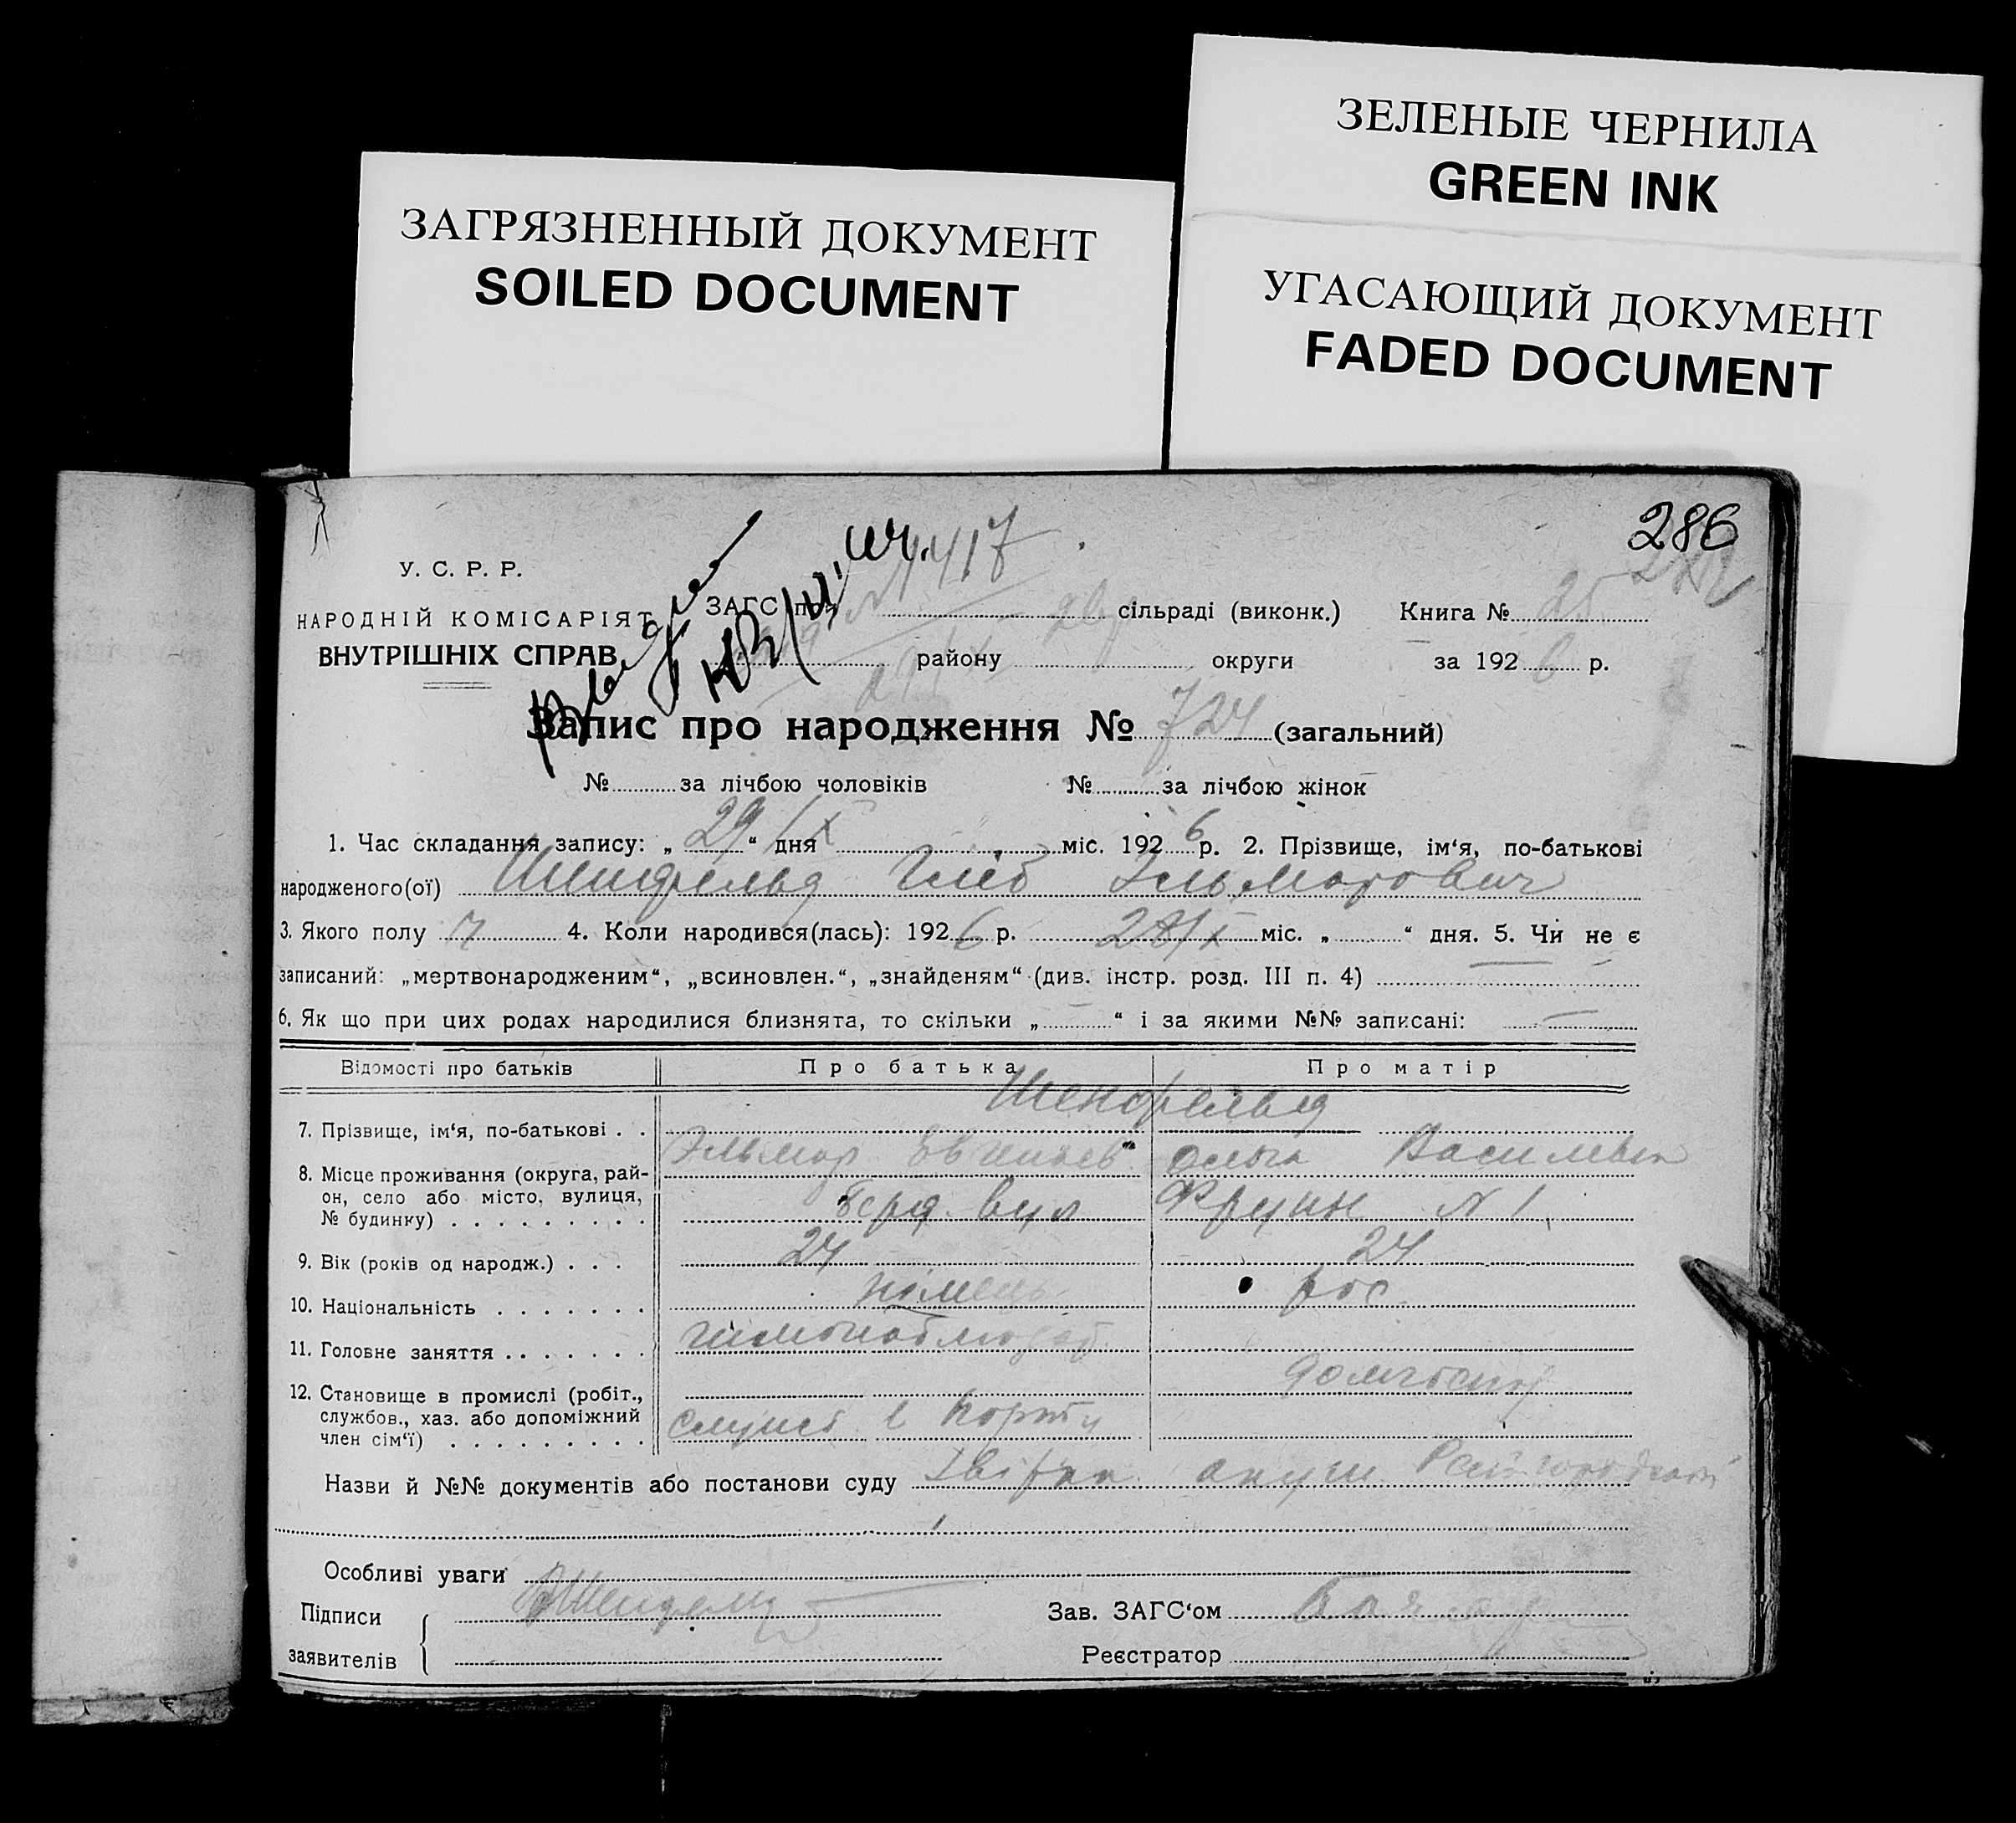 ЗЕЛЕНЫЕ ЧЕРНИЛА
GREEN INK
ЗАГРЯЗНЕННЫЙ ДОКУМЕНТ
SOILED DOCUMENT
УГАСАЮЩИЙ ДОКУМЕНТ
FADED DOCUMENT
286
У. С. Р. Р.
НАРОДНІЙ КОМІСАРІЯТ
ВНУТРІШНІХ СПРАВ
№ 1417
ЗАГС при сільраді (виконк.) Книга № 25
району округи за 1926 р.
Запис про народження № 724 (загальний)
№ за лічбою чоловіків № за лічбою жінок
1. Час складання запису: „ 29 “ дня IX міс. 1926 р. 2. Прізвище, ім‘я, по-батькові
народженого(ої) Шенфельд Гліб Ельмарович
3. Якого полу ч 4. Коли народився(лась): 1926 р. міс. „ “ дня. 5. Чи не є
записаний: „мертвонародженим“, „всиновлен.“, „знайденям“ (див. інстр. розд. III п. 4) —
6. Як що при цих родах народилися близнята, то скільки „ — “ і за якими №№ записані: —
Відомості про батьків Про батька Про матір
Шенфельд
7. Прізвище, ім‘я, по-батькові Эльмар Евгеньев Ольга Васильевн
8. Місце проживання (округа, рай-
он, село або місто, вулиця,
№ будинку) Берд. вул Фрунзе N 1
9. Вік (років од народж.) 24 24
10. Національність німець рос.
11. Головне заняття
12. Становище в промислі (робіт., домгоспод
службов., хаз. або допоміжний
член сім‘ї) служб. в порту
Назви й №№ документів або постанови суду акуш.
Особливі уваги
Підписи Зав. ЗАГС‘ом
заявителів Реєстратор